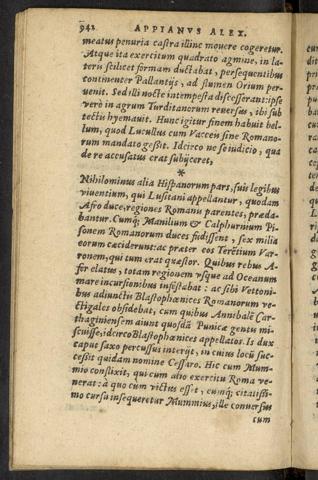 942 APPIANVS ALEX.
meatus penuria castra illinc mouere cogeretur.
Atque ita exercitum quadrato agmine, in la-
teris scilicet formam ductabat, persequentibus
continenter Pallantijs, ad flumen Orium per-
uenit. Sed illi nocte intempesta discesserant: ipse
verò in agrum Turditanorum reuersus, ibi sub
tectis hyemauit. Hunc igitur finem habuit bel-
lum, quod Lucullus cum Vacceis sine Romano-
rum mandato gessit. Idcirco ne se iudicio, qua
de re accusatus erat subijceret,
*
Nihilominus alia Hispanorum pars, suis legibus
viuentium, qui Lusitani appellantur, quodam
Afro duce, regiones Romanis parentes, præda-
bantur. Cumq; Manilium & Calphurnium Pi-
sonem Romanorum duces fudissent, sex milia
eorum cæciderunt: ac præter eos Terẽtium Var-
ronem, qui tum erat quæstor. Quibus rebus A-
fer elatus, totam regionem vsque ad Oceanum
mare incursionibus infestabat: ac sibi Vettoni-
bus adiunctis Blastophœnices Romanorum ve-
ctigales obsidebat, cum quibus Annibalẽ Car-
thaginiensem aiunt quosdã Punicæ gentis mi-
scuisse, idcirco Blastophœnices appellatos. Is dux
caput saxo percussus interijt, in cuius locũ suc-
cessit quidam nomine Cessaro. Hic cum Mum-
mio conflixit, qui cum alio exercitu Roma ve-
nerat: à quo cum victus esset, cumq; citatissi-
mo cursu insequeretur Mummius, ille conuersus
cum